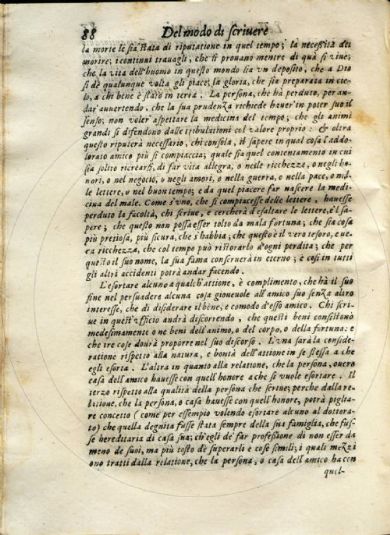 88 Del modo di scriuere
la morte le sia stata di riputatione in quel tempo; la necessità del
morire; i continui trauagli, che si prouano mentre di quà si viue;
che la vita dell'huomo in questo mondo sia vn deposito, che a Dio
si dè qualunque volta gli piace; la gloria, che sia preparata in cie-
lo, a chi bene è stato in terra. La persona, che hà perduto, per an-
dar auuertendo, che la sua prudenza richiede hauer in poter suo il
senso; non voler aspettare la medicina del tempo; che gli animi
grandi si difendono dalle tribulationi col valore proprio: & oltra
questo riputerà necessario, chi consola, il sapere in qual cosa l'addo-
lorato amico più si compiaccia; quale sia quel contentamento in cui
sia solito ricrearsi, di far vita allegra, o nelle ricchezze, o negli ho-
nori, o nel negocio, o negli amori, o nella guerra, o nella pace, o nel-
le lettere, o nel buon tempo; e da quel piacere far nascere la medi-
cina del male. Come s'vno, che si compiacesse delle lettere, hauesse
perduto la facoltà, chi scriue, e cercherà d'esaltare le lettere, e'l sa-
pere; che questo non possa esser tolto da mala fortuna; che sia cosa
più pretiosa, più sicura, che s'habbia; che questo è il vero tesoro, e ue-
ra ricchezza, che col tempo può ristorarlo d'ogni perdita; che per
questo il suo nome, la sua fama conseruerà in eterno; è così in tutti
gli altri accidenti potrà andar facendo.
L'esortare alcuno a qualch'attione, è complimento, che hà il suo
fine nel persuadere alcuna cosa gioueuole all'amico suo senza altro
interesse, che di disiderare il bene, e comodo d'esso amico. Chi scri-
ue in quest'vfficio andrà discorrendo, che questi beni consistono
medesimamente o ne beni dell'animo, o del corpo, o della fortuna: e
che tre cose dourà proporre nel suo discorso. L'vna sarà la conside-
ratione rispetto alla natura, e bontà dell'attione in se stessa a che
egli esorta. L'altra in quanto alla relatione, che la persona, ouero
casa dell'amico hauesse con quell'honore a che si vuole esortare. Il
terzo rispetto alla qualità della persona che scriue; perche dalla re-
latione, che la persona, o casa hauesse con quell'honore, potrà pigli-
are concetto (come per essempio volendo esortare alcuno al dottora-
to) che quella degnità fusse stata sempre della sua famiglia, che fus-
se hereditaria di casa sua; ch'egli dè far professione di non esser da
meno de suoi, ma più tosto de superarli e cose simili; i quali mezzi
ono tratti dalla relatione, che la persona, o casa dell'amico haueu
quel-